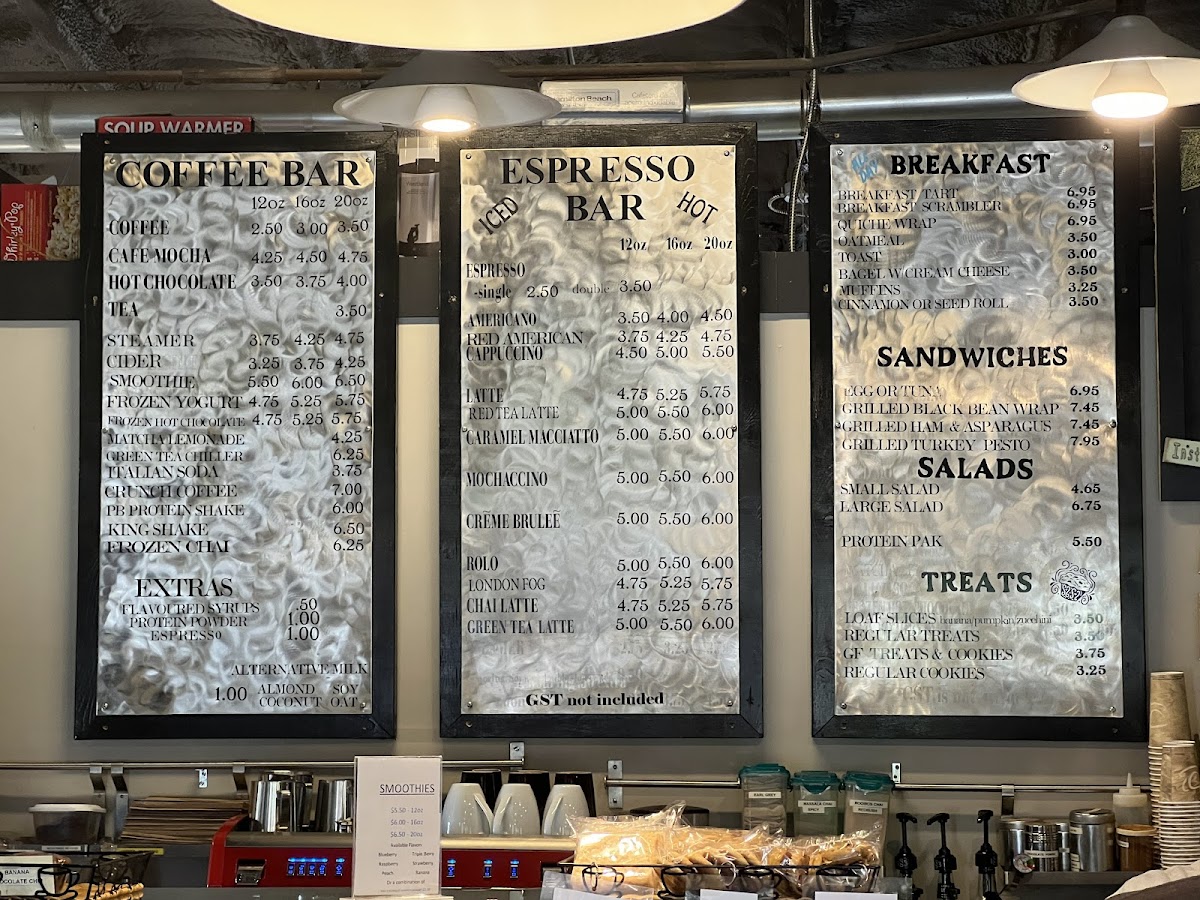 SOUP WARMER
Hamilton Beach
Whirley Pop
COFFEE BAR
12oz 16oz 20oz
COFFEE 2.50 3.00 3.50
CAFE MOCHA 4.25 4.50 4.75
HOT CHOCOLATE 3.50 3.75 4.00
TEA 3.50
STEAMER 3.75 4.25 4.75
CIDER 3.25 3.75 4.25
SMOOTHIE 5.50 6.00 6.50
FROZEN YOGURT 4.75 5.25 5.75
FROZEN HOT CHOCOLATE 4.75 5.25 5.75
MATCHA LEMONADE 4.25
GREEN TEA CHILLER 6.25
ITALIAN SODA 3.75
CRUNCH COFFEE 7.00
PB PROTEIN SHAKE 6.00
KING SHAKE 6.50
FROZEN CHAI 6.25
EXTRAS
FLAVOURED SYRUPS .50
PROTEIN POWDER 1.00
ESPRESSO 1.00
ALTERNATIVE MILK
1.00 ALMOND SOY
COCONUT OAT
ESPRESSO
BAR
ICED
HOT
12oz 16oz 20oz
ESPRESSO
-single 2.50 double 3.50
AMERICANO 3.50 4.00 4.50
RED AMERICAN 3.75 4.25 4.75
CAPPUCCINO 4.50 5.00 5.50
LATTE 4.75 5.25 5.75
RED TEA LATTE 5.00 5.50 6.00
CARAMEL MACCIATTO 5.00 5.50 6.00
MOCHACCINO 5.00 5.50 6.00
CRĒME BRULEĒ 5.00 5.50 6.00
ROLO 5.00 5.50 6.00
LONDON FOG 4.75 5.25 5.75
CHAI LATTE 4.75 5.25 5.75
GREEN TEA LATTE 5.00 5.50 6.00
GST not included
BREAKFAST
BREAKFAST TART 6.95
BREAKFAST SCRAMBLER 6.95
QUICHE WRAP 6.95
OATMEAL 3.50
TOAST 3.00
BAGEL W/CREAM CHEESE 3.50
MUFFINS 3.25
CINNAMON OR SEED ROLL 3.50
SANDWICHES
EGG OR TUNA 6.95
GRILLED BLACK BEAN WRAP 7.45
GRILLED HAM & ASPARAGUS 7.45
GRILLED TURKEY PESTO 7.95
SALADS
SMALL SALAD 4.65
LARGE SALAD 6.75
PROTEIN PAK 5.50
TREATS
LOAF SLICES banana/pumpkin/zucchini 3.50
REGULAR TREATS 3.50
GF TREATS & COOKIES 3.75
REGULAR COOKIES 3.25
Inst
SMOOTHIES
$5.50 - 12oz
$6.00 - 16oz
$6.50 - 20oz
Available Flavors
Blueberry Triple Berry
Raspberry Strawberry
Peach Banana
Or a combination of
EARL GREY
BANANA
CHOCOLATE CHIP